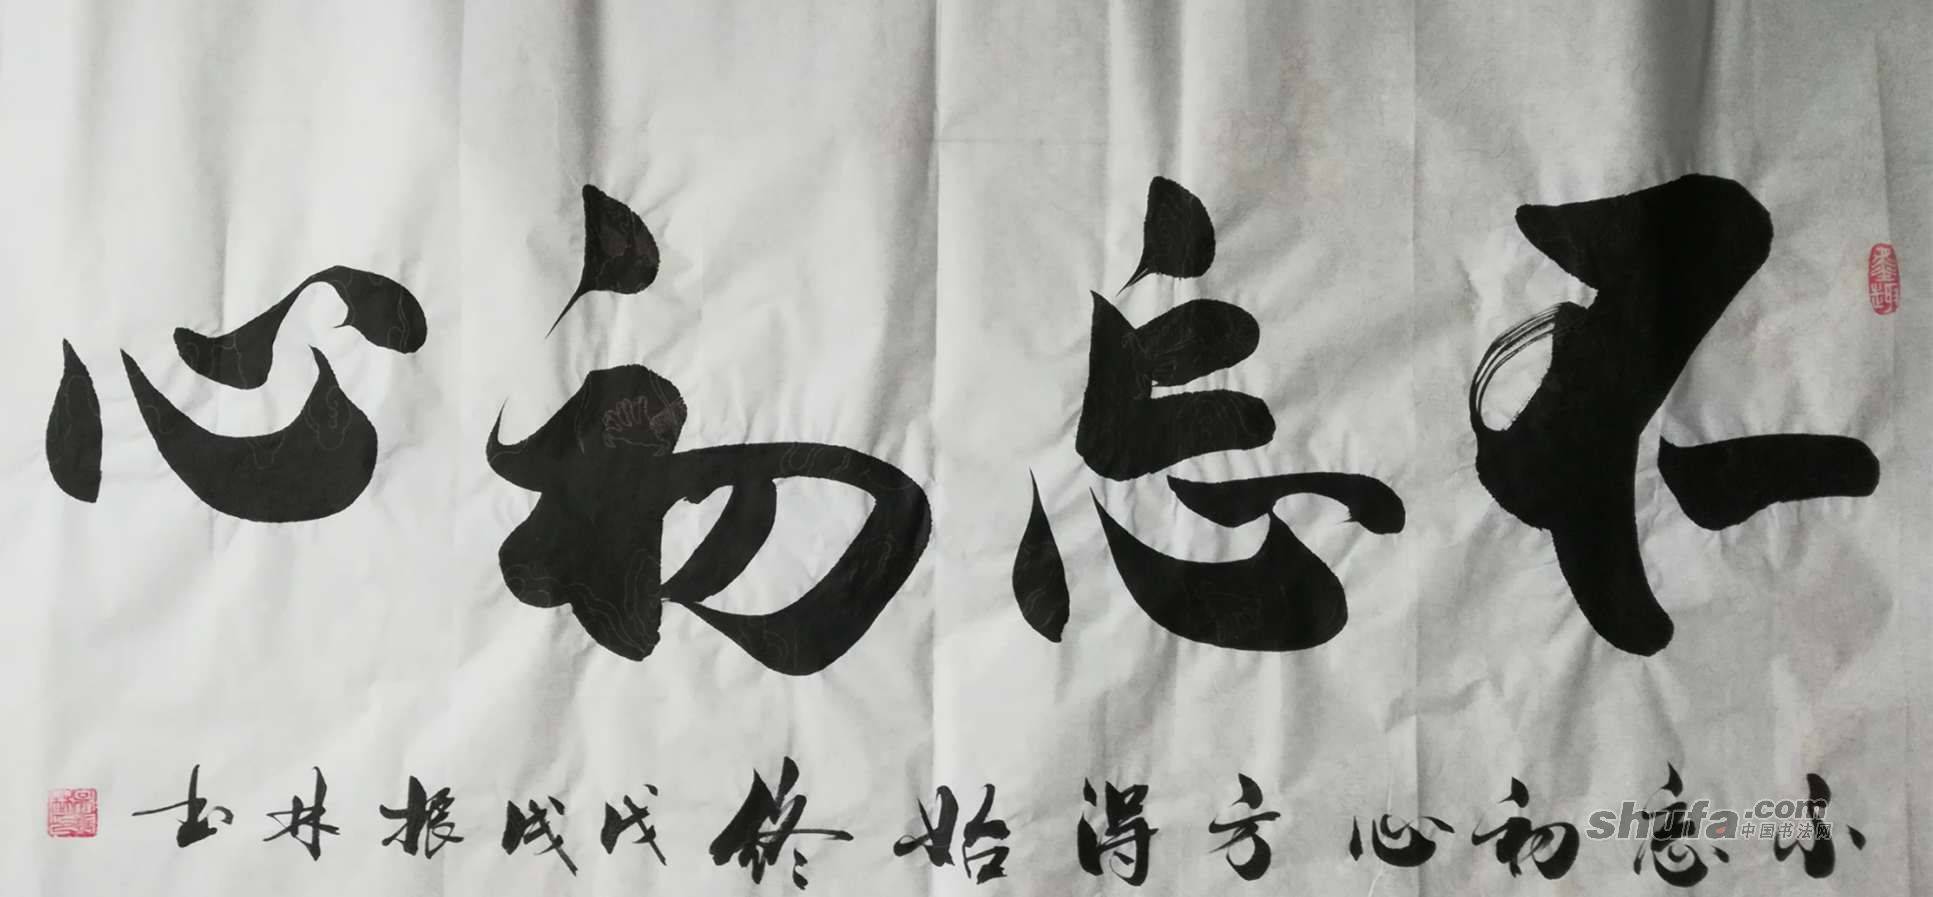 不忘初心
不忘初心方得始终戊戌振林书
墨趣
shufa.com
中国书法网